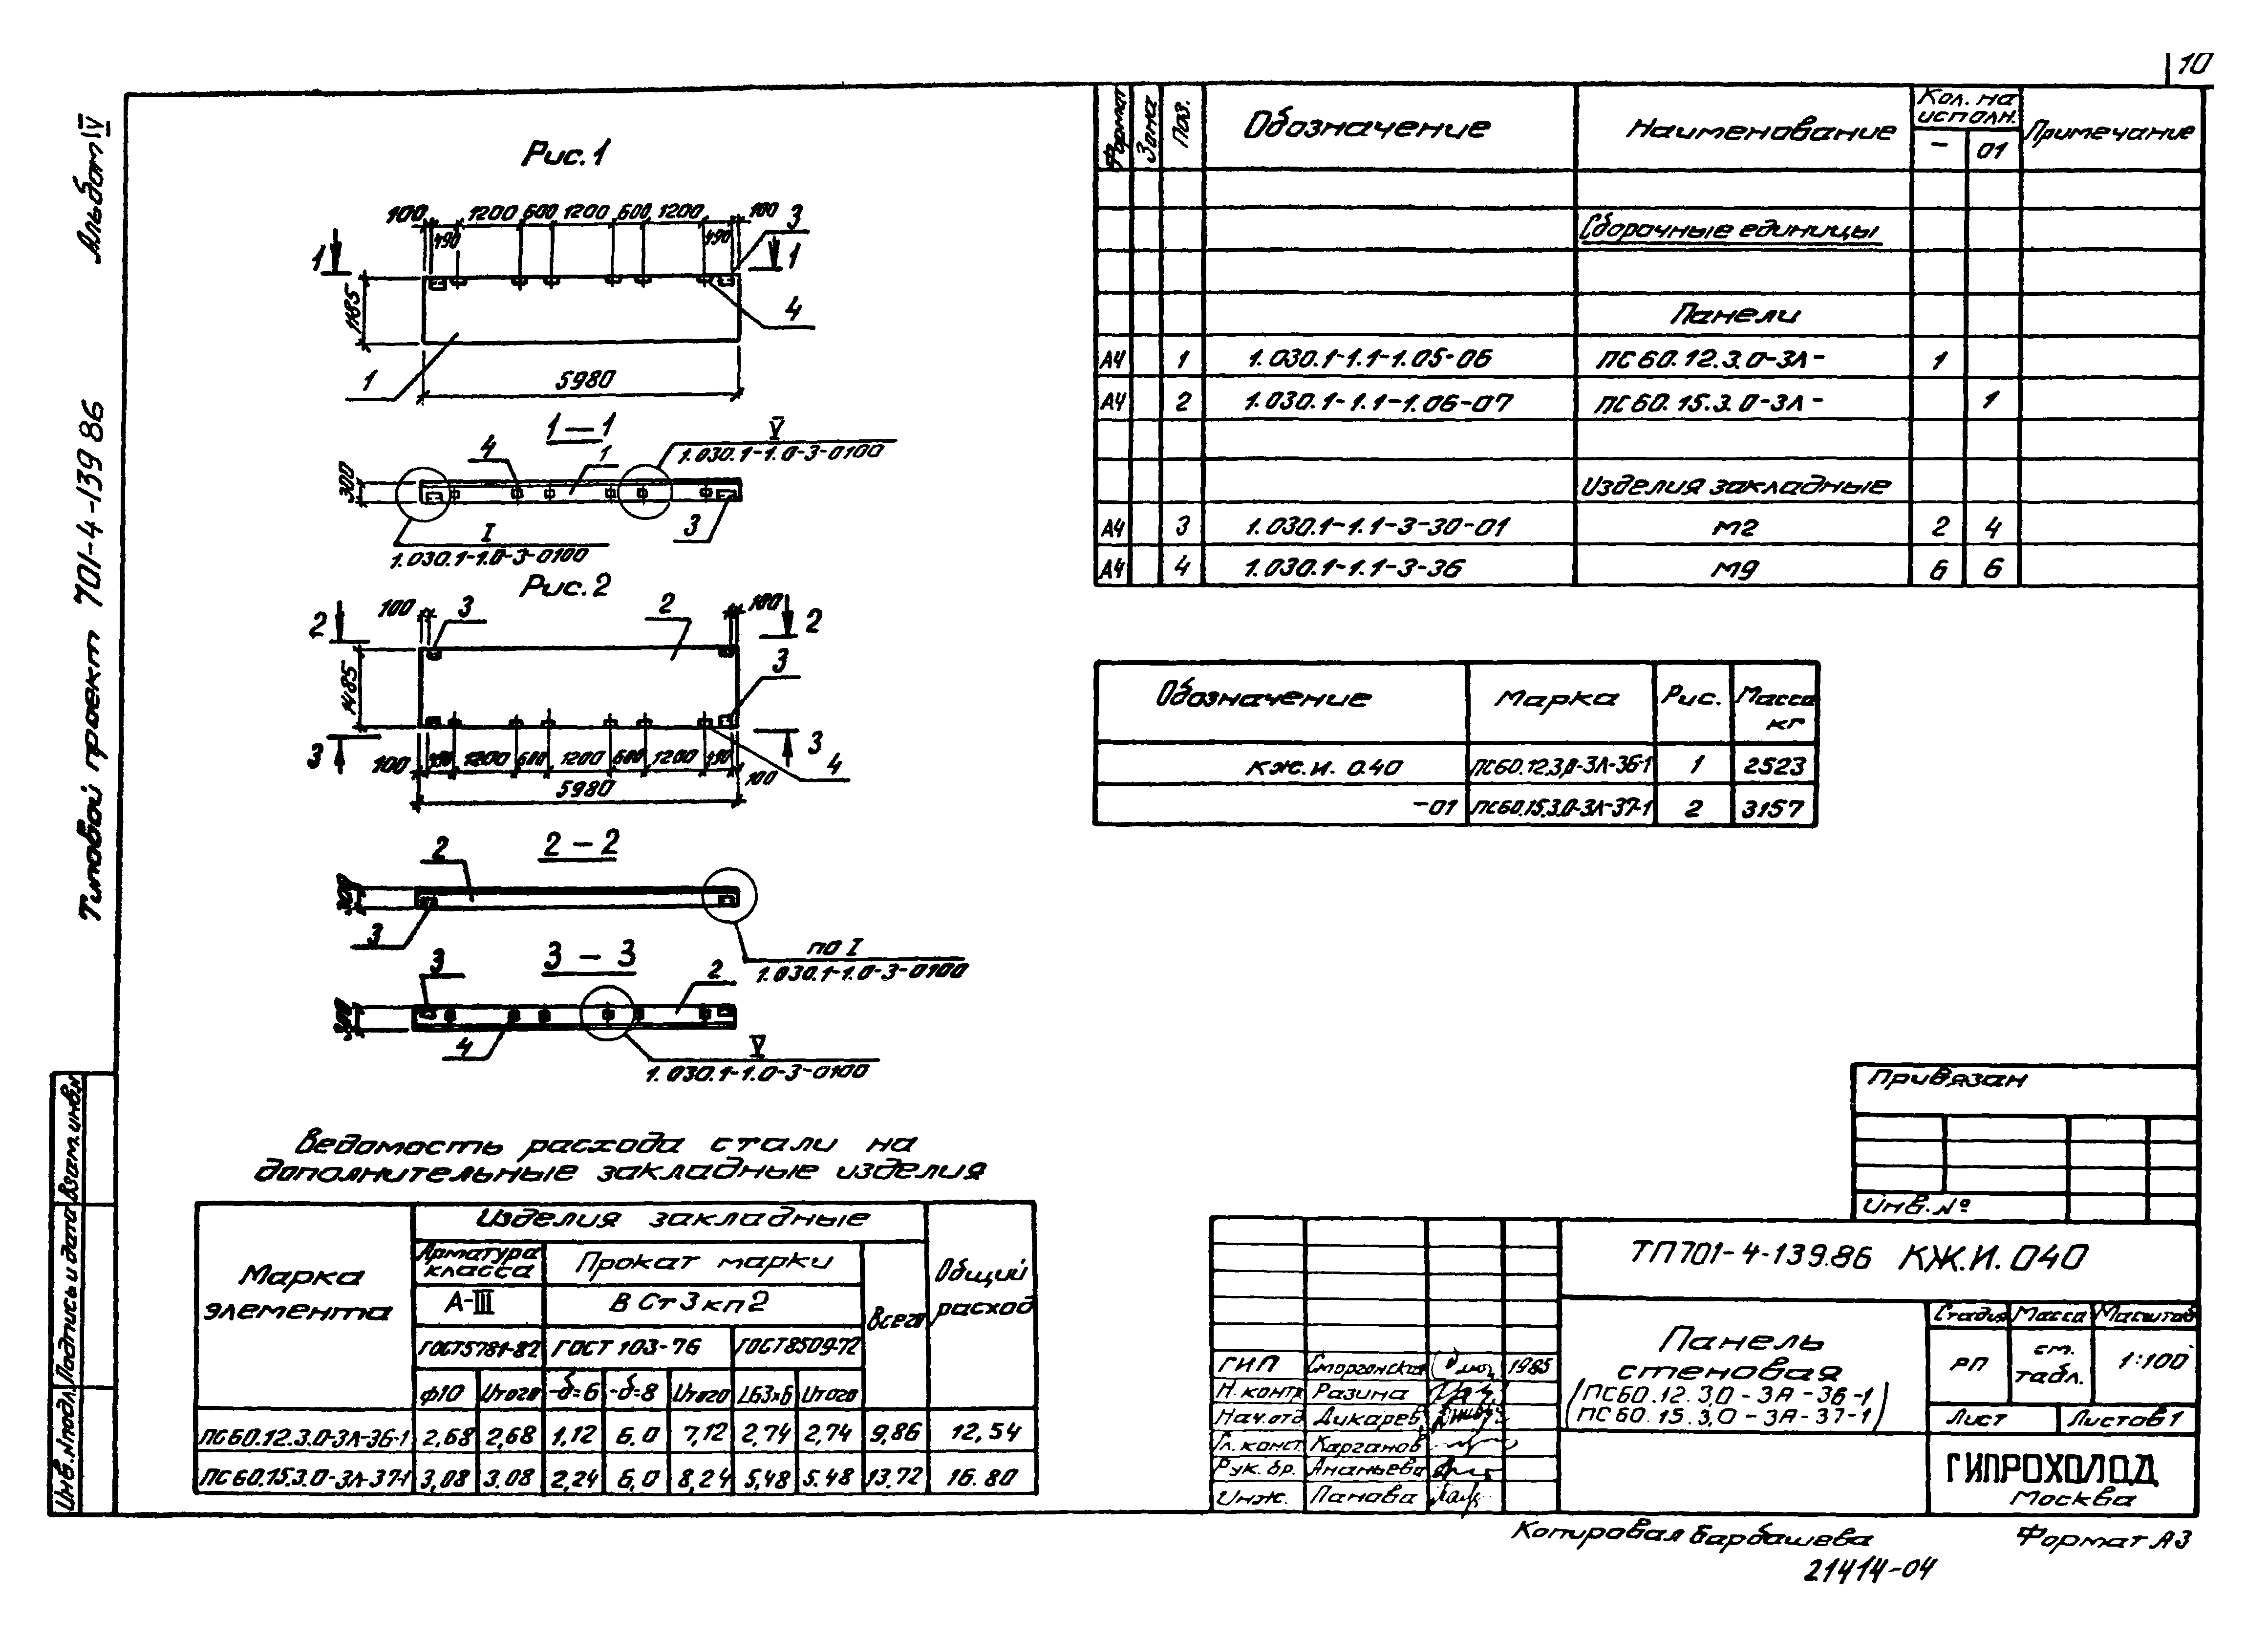 10
Альбом IV
Типовой проект 701-4-139 86
Инв.№подл. Подпись и дата Взам.инв.№
Рис.1
100 1200 600 1200 600 1200 100 3
490 490
1 1
1185
4
1
5980
1—1
4 1 V
1.030.1-1.0-3-0100
300
3
I
1.030.1-1.0-3-0100
Рис.2
100 3 2 100
2 2
3
1485
3 3
100 490 1200 600 1200 600 1200 490 100
4
5980
2-2
2
300
3
по I
1.030.1-1.0-3-0100
3-3
3 2
300
4
V
1.030.1-1.0-3-0100
Формат Зона Поз. Обозначение Наименование Кол. на исполн. Примечание
- 01
Сборочные единицы
Панели
А4 1 1.030.1-1.1-1.05-06 ПС60.12.3.0-3Л- 1
А4 2 1.030.1-1.1-1.06-07 ПС60.15.3.0-3Л- 1
Изделия закладные
А4 3 1.030.1-1.1-3-30-01 М2 2 4
А4 4 1.030.1-1.1-3-36 М9 6 6
Обозначение Марка Рис. Масса кг
КЖ.И. 040 ПС60.12.3,0-3Л-36-1 1 2523
-01 ПС60.15.3.0-3Л-37-1 2 3157
Ведомость расхода стали на
дополнительные закладные изделия
Марка элемента Изделия закладные Общий расход
Арматура класса Прокат марки Всего
А-III ВСт3кп2
ГОСТ5781-82 ГОСТ 103-76 ГОСТ8509-72
ф10 Итого -δ=6 -δ=8 Итого L63x6 Итого
ПС60.12.3.0-3Л-36-1 2,68 2,68 1,12 6.0 7,12 2,74 2,74 9,86 12,54
ПС60.15.3.0-3Л-37-1 3,08 3.08 2,24 6,0 8,24 5,48 5.48 13.72 16.80
Привязан
Инв.№
ТП701-4-139.86 КЖ.И.040
Панель
стеновая
(ПС60.12.3,0-3Л-36-1)
(ПС60.15.3,0-3Л-37-1)
Стадия Масса Масштаб
РП см. табл. 1:100
Лист Листов 1
ГИПРОХОЛОД
Москва
ГИП Сморгонская 1985
Н.контр Разина
Нач.отд Дикарев
Гл.конст. Карганов
Рук.бр. Ананьева
Инж. Панова
Копировал Барбашева Формат А3
21414-04